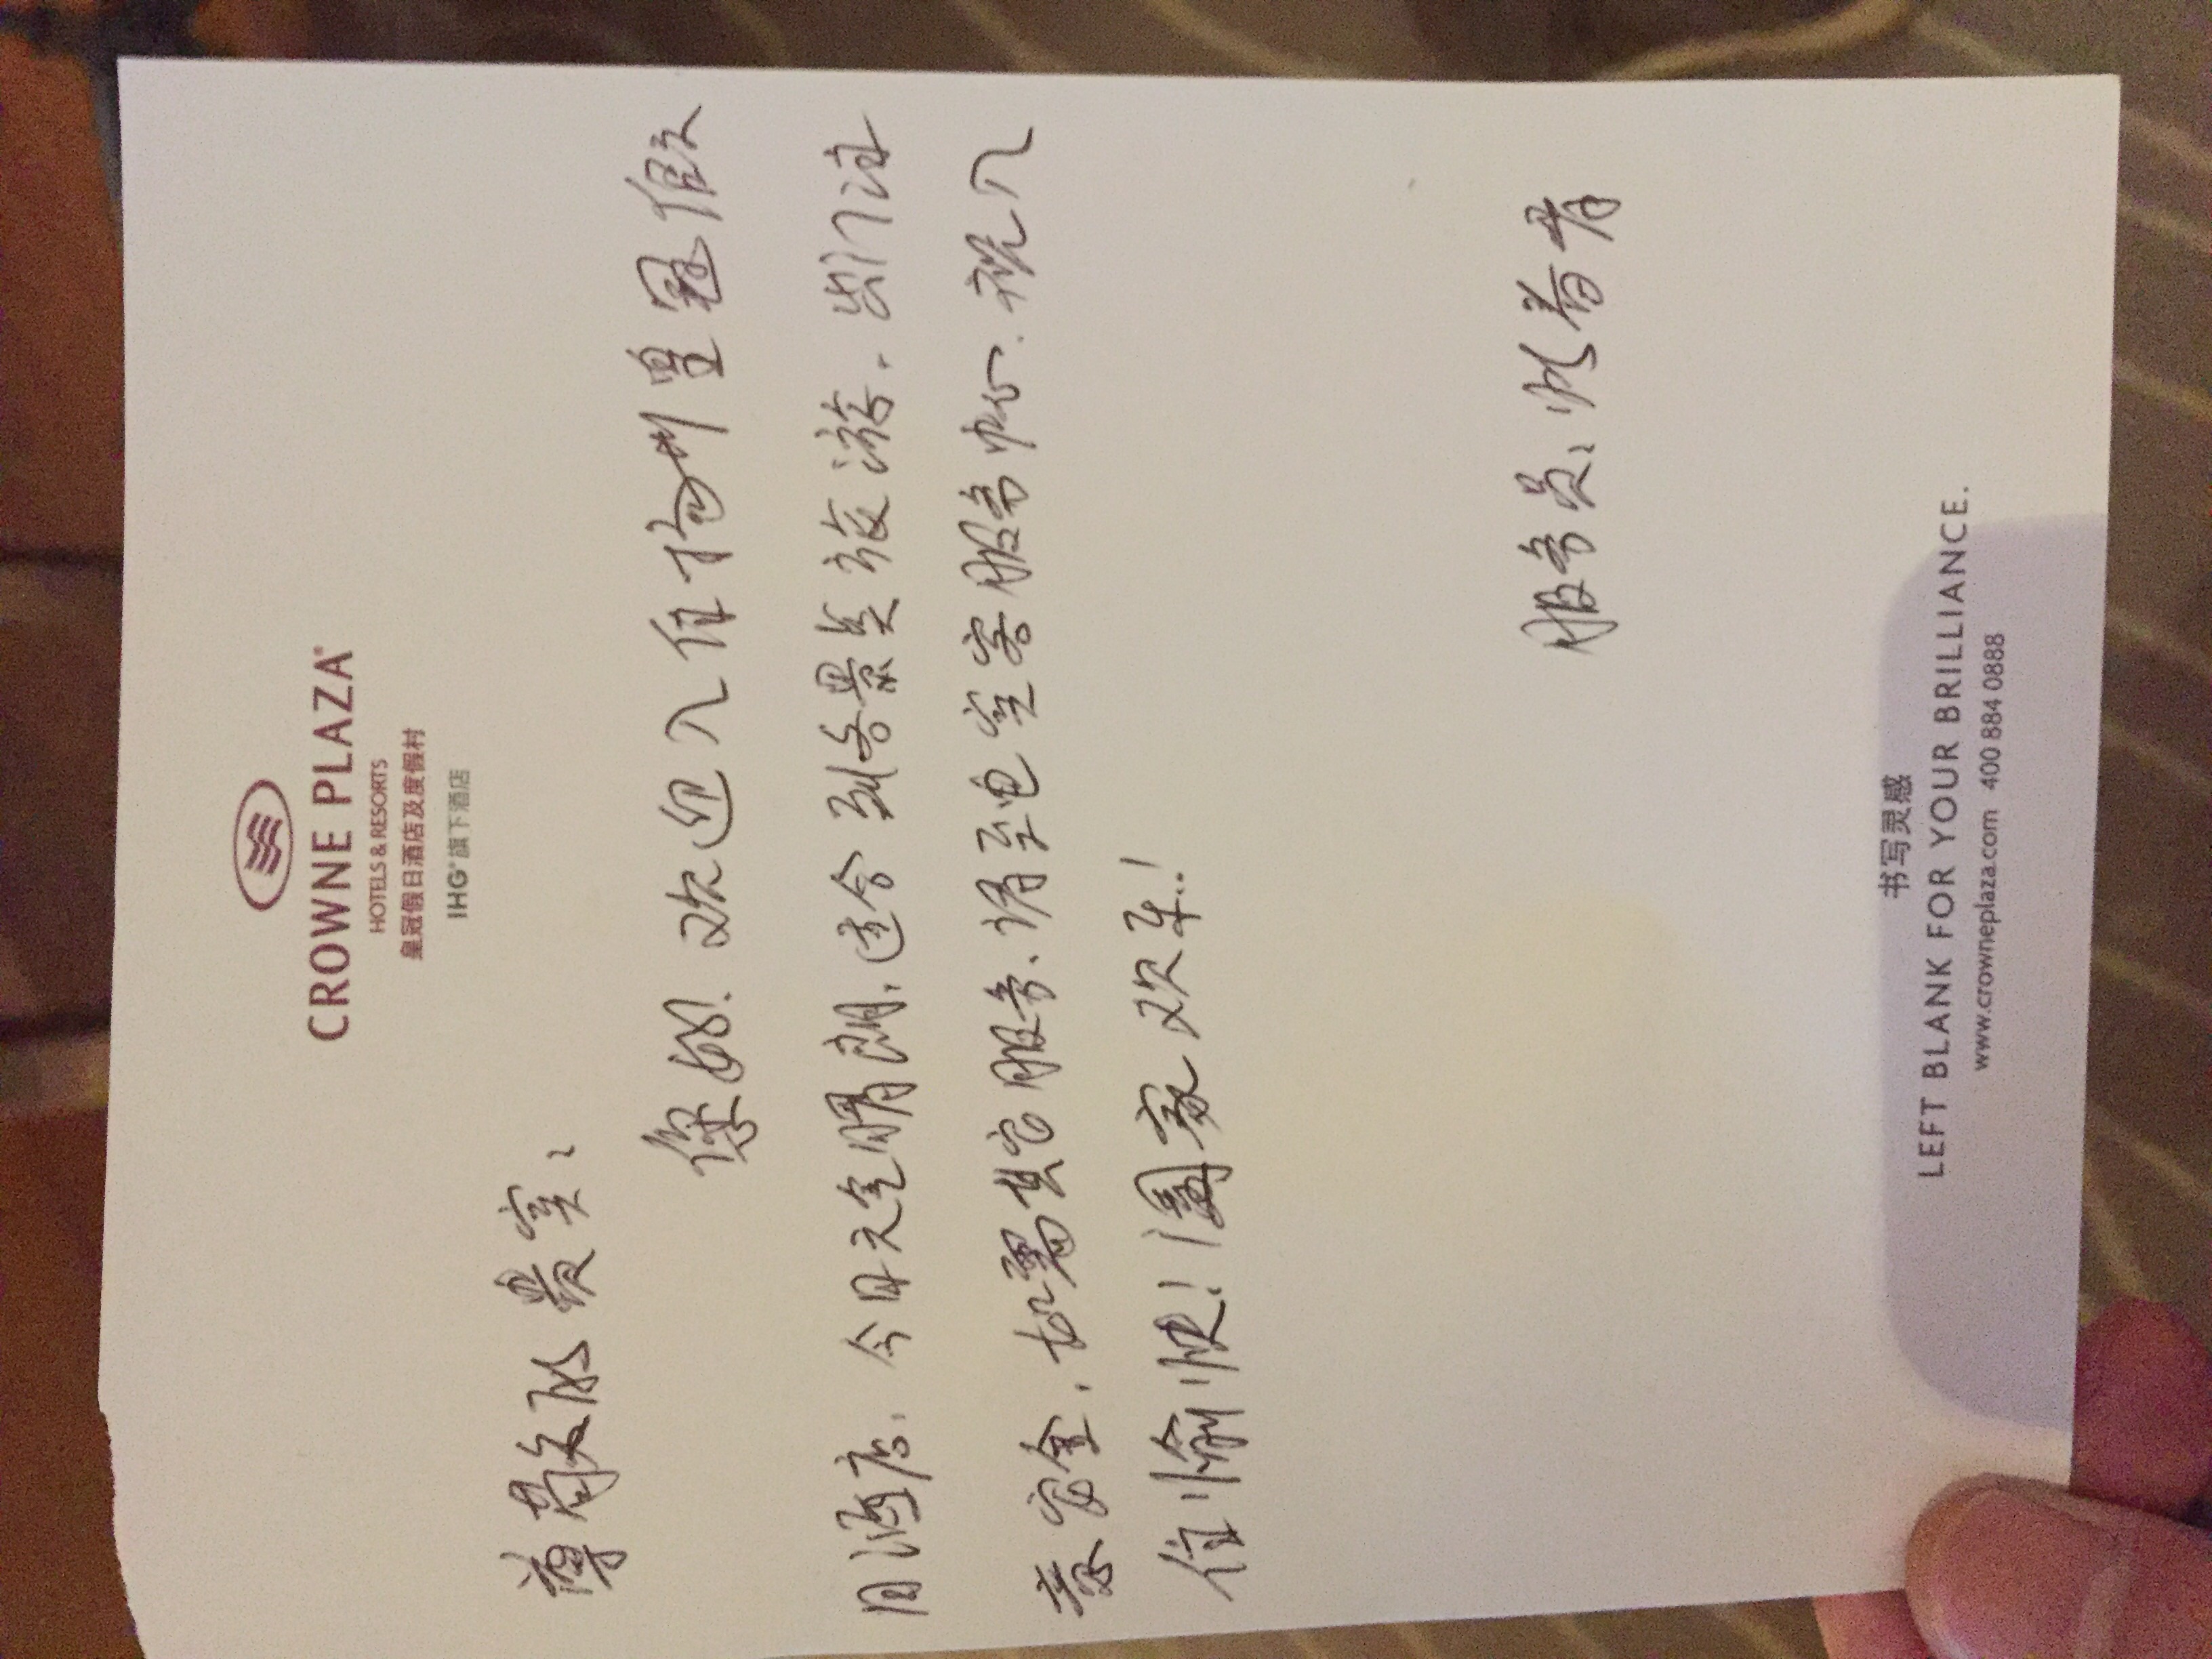 CROWNE PLAZA
HOTELS & RESORTS
皇冠假日酒店及度假村
IHG® 旗下酒店
尊敬的贵宾：
您好！欢迎入住扬州皇冠假
日酒店。今日天气晴朗，适合到各景点旅游。出门注
意安全，如需其它服务，请至电宾客服务中心。祝入
住愉快！阖家欢乐！
服务员：
书写灵感
LEFT BLANK FOR YOUR BRILLIANCE.
www.crowneplaza.com 400 884 0888